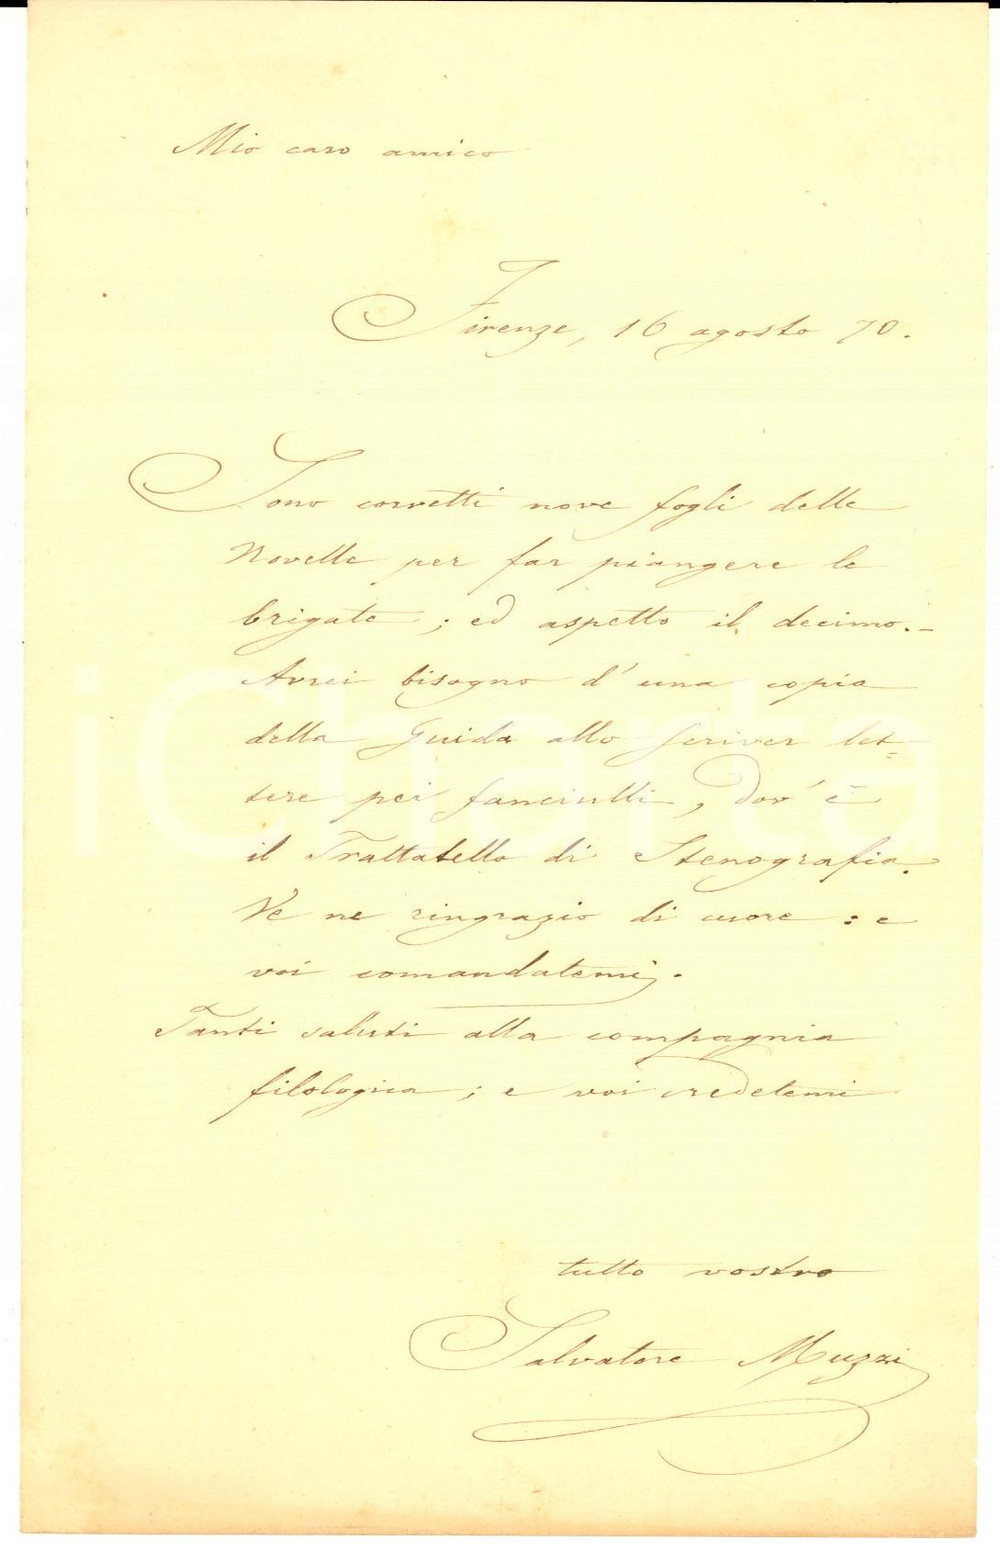 Mio caro amico
Firenze, 16 agosto 70.
Sono corretti nove fogli delle
Novelle per far piangere le
brigate; ed aspetto il decimo.-
Avrei bisogno d'una copia
della Guida allo scriver let=
tere pei fanciulli, dov' è
il Trattatello di Stenografia.
Ve ne ringrazio di cuore: e
voi comandatemi.
Tanti saluti alla compagnia
filologica; e voi credetemi
tutto vostro
Salvatore Muzzi
iCharta